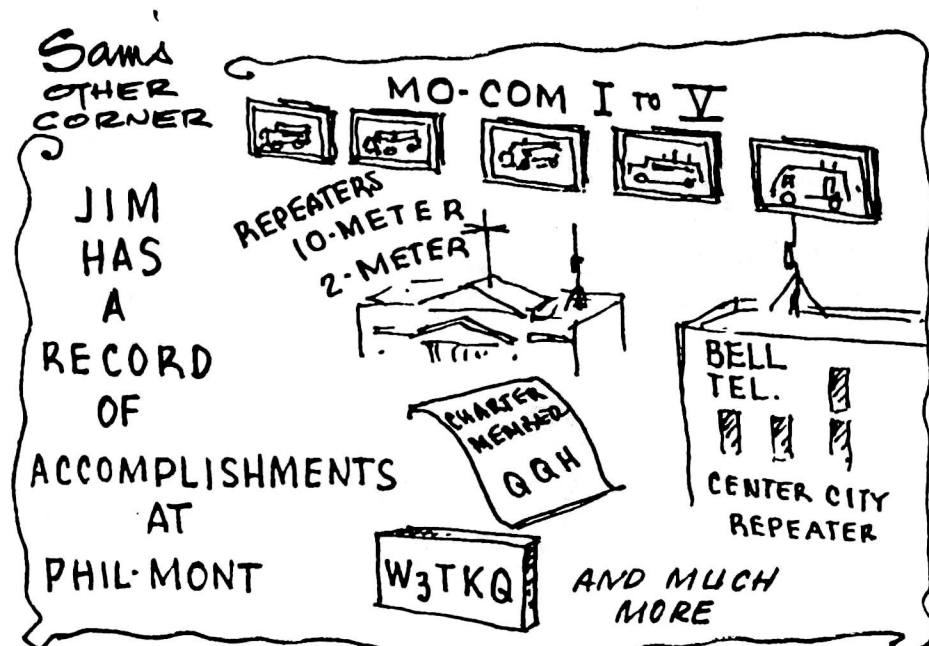 Sam's
OTHER
CORNER
MO-COM I TO V
JIM
HAS
A
RECORD
OF
ACCOMPLISHMENTS
AT
PHIL-MONT
REPEATERS
10-METER
2-METER
BELL
TEL.
CENTER CITY
REPEATER
CHARTER
MEMBER
QQH
W3TKQ
AND MUCH
MORE